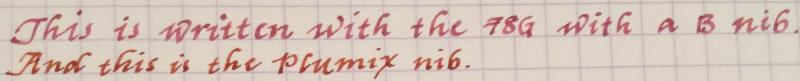 This is written with the 78G with a B nib.
And this is the Plumix nib.